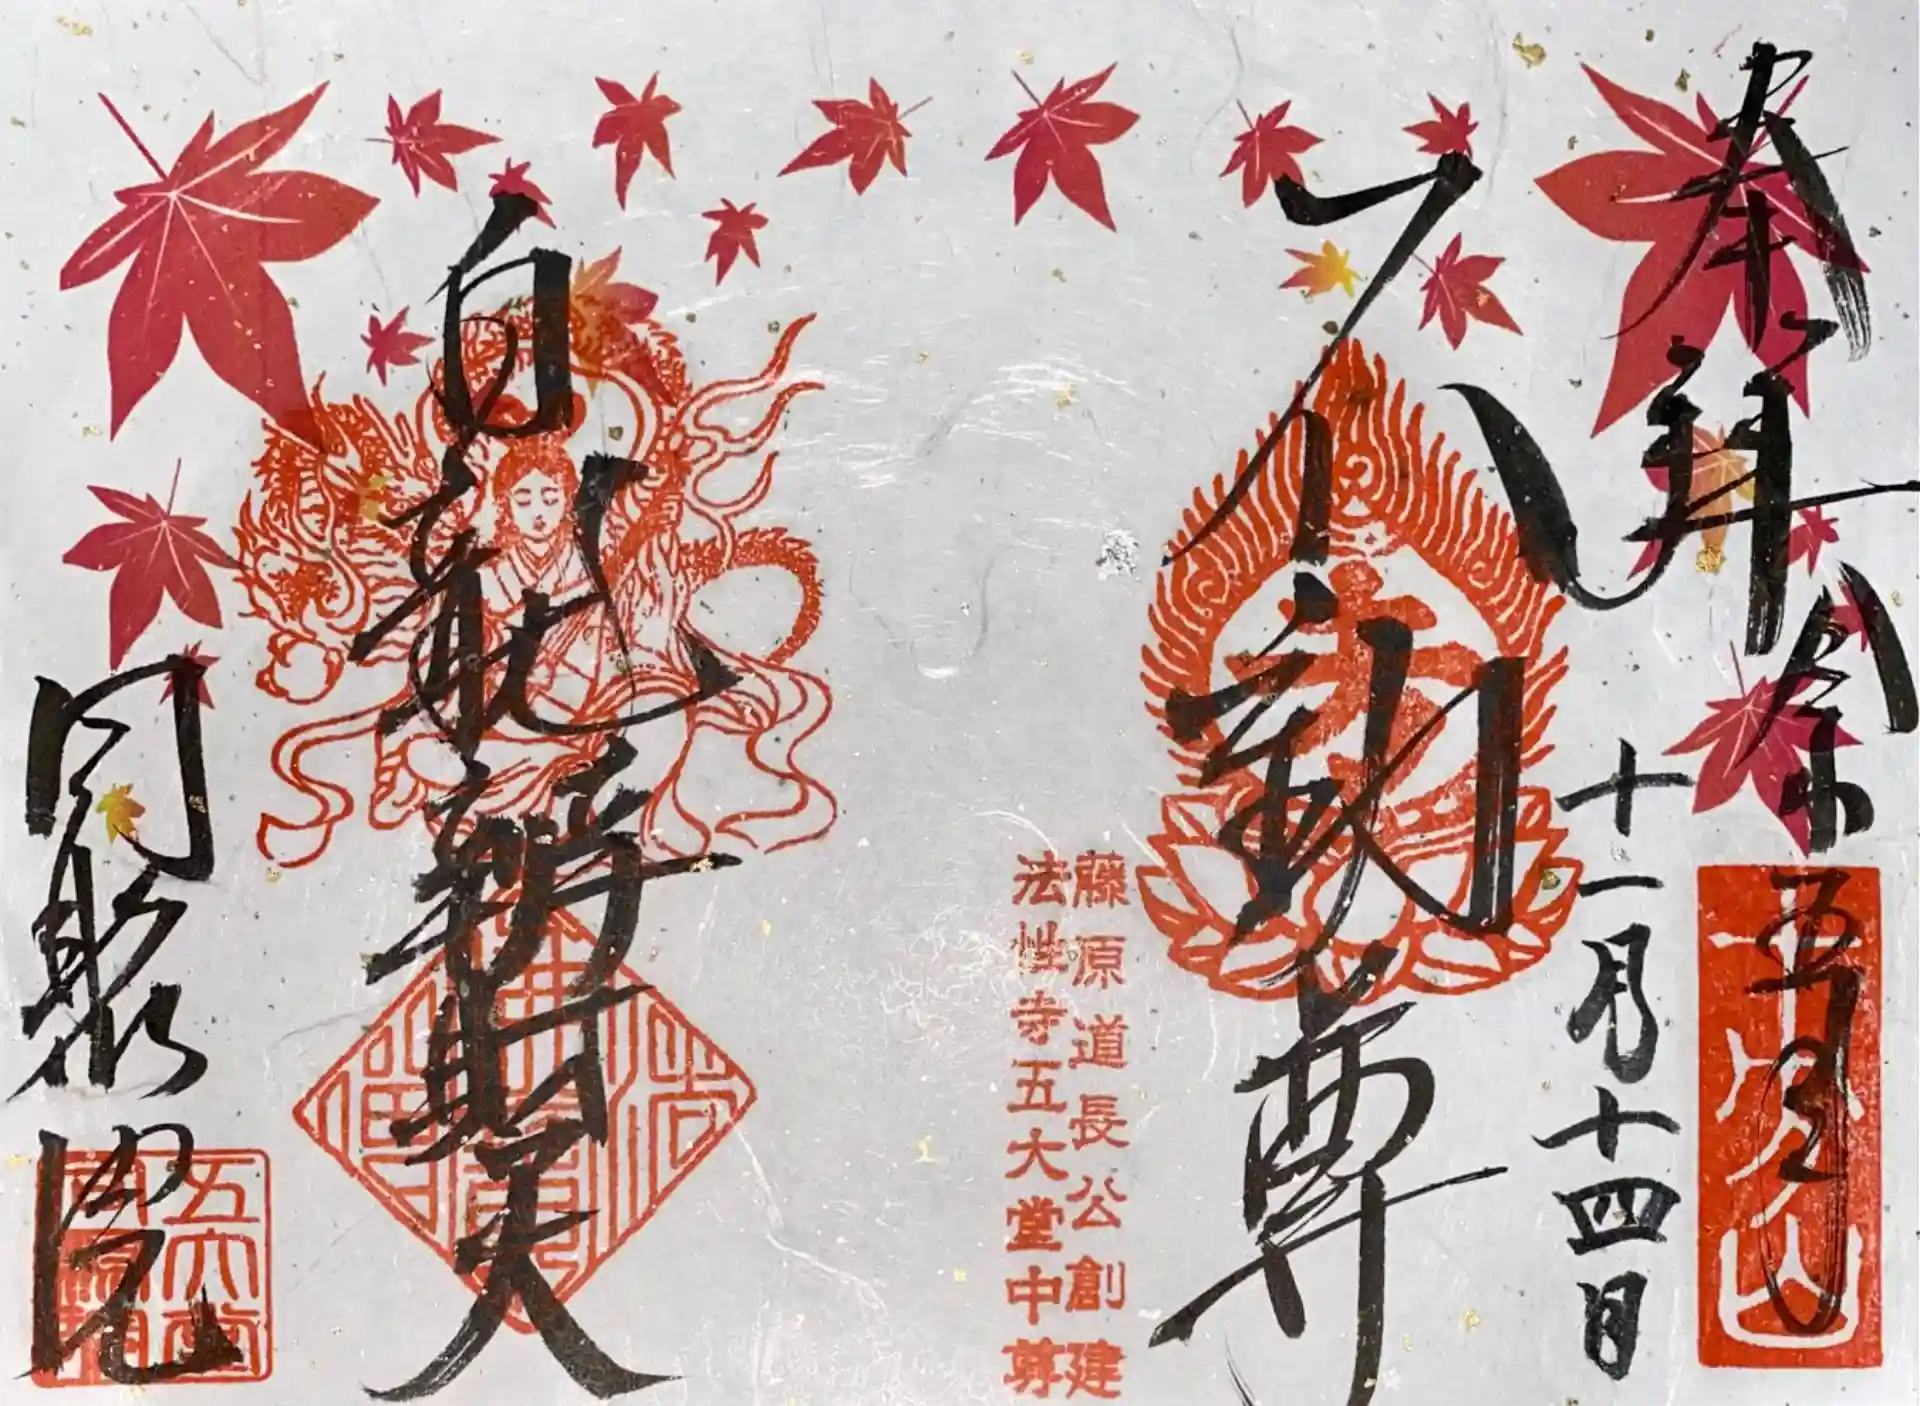 奉拝
令和五年
十一月十四日
不動尊
藤原道長公創建
法性寺五大堂中尊
白龍辨財天
同聚院
五大堂